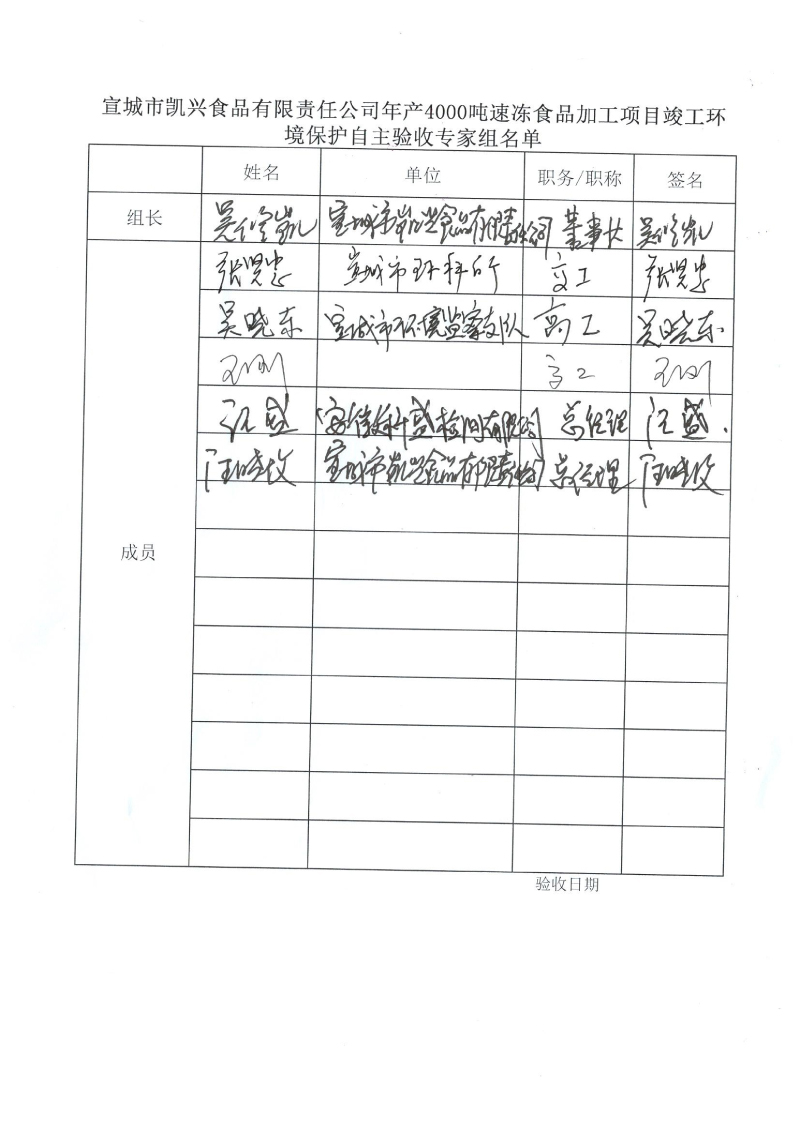 宣城市凯兴食品有限责任公司年产4000吨速冻食品加工项目竣工环
境保护自主验收专家组名单
姓名 单位 职务/职称 签名
组长 宣城市凯兴食品有限责任公司 董事长
张贤忠 宣城市环科所 高工 张贤忠
吴晓东 宣城市环境监察支队 高工 吴晓东
高工
汪盛 检测有限公司 总经理 汪盛
宣城市凯兴食品有限责任公司 总经理
成员
验收日期